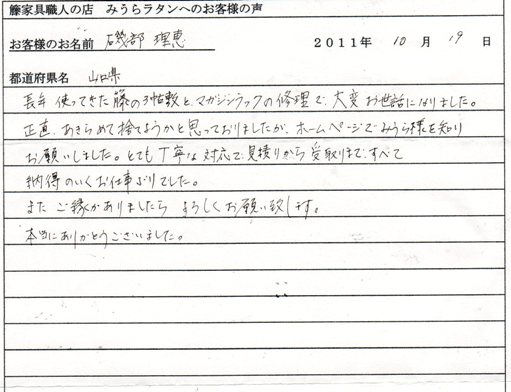 籐家具職人の店　みうらラタンへのお客様の声
お客様のお名前　磯部 理恵　2011年 10 月 19 日
都道府県名　山口県
長年 使ってきた 籐の3帖敷と、マガジンラックの修理で、大変 お世話になりました。
正直 あきらめて捨てようかと思っておりましたが、ホームページでみうら様を知り
お願いしました。とても 丁寧な 対応で、見積りから 受取りまで、すべて
納得のいくお仕事ぶりでした。
また ご縁がありましたら よろしくお願い致します。
本当にありがとうございました。